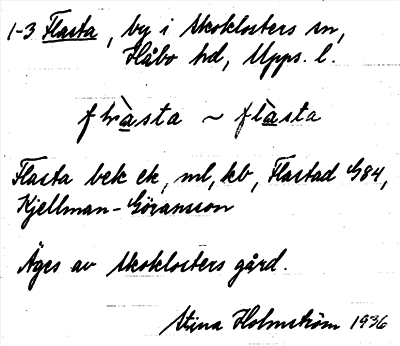 1-3 Flasta, by i Skoklosters sn,
Håbo hd, Upps. l.
flàsta ~ flàsta
Flasta bek ek, ml, kb, Flastad G84,
Kjellman-Göransson
Äges av Skoklosters gård.
Stina Holmström 1936